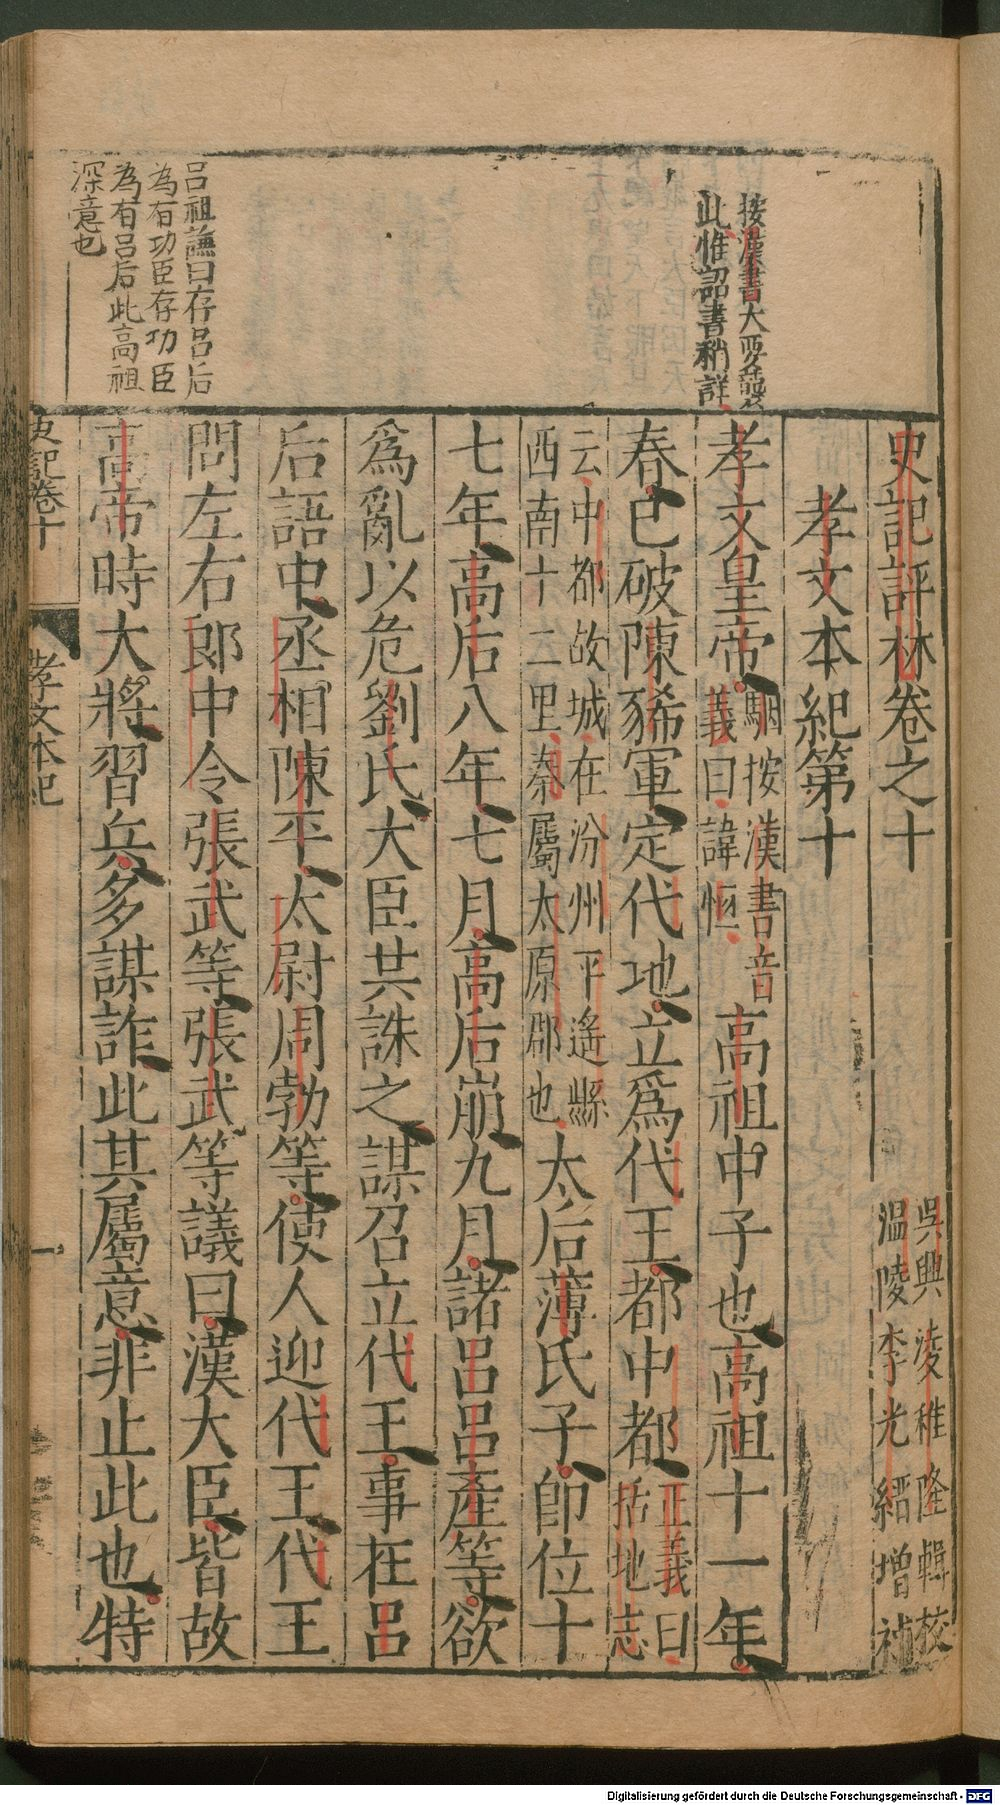 按漢書大要襲
此惟詔書稍詳
呂祖謙曰存呂后
為有功臣存功臣
為有呂后此高祖
深意也
史記評林卷之十
吳興凌稚隆輯校
温陵李光縉增補
孝文本紀第十
孝文皇帝
駰按漢書音
義曰諱恒
高祖中子也高祖十一年
春已破陳豨軍定代地立爲代王都中都
正義曰
括地志
云中都故城在汾州平遙縣
西南十二里秦屬太原郡也
太后薄氏子即位十
七年高后八年七月高后崩九月諸呂呂產等欲
爲亂以危劉氏大臣共誅之謀召立代王事在呂
后語中丞相陳平太尉周勃等使人迎代王代王
問左右郎中令張武等張武等議曰漢大臣皆故
高帝時大將習兵多謀詐此其屬意非止此也特
史記卷十
孝文本紀
一
Digitalisierung gefördert durch die Deutsche Forschungsgemeinschaft - DFG